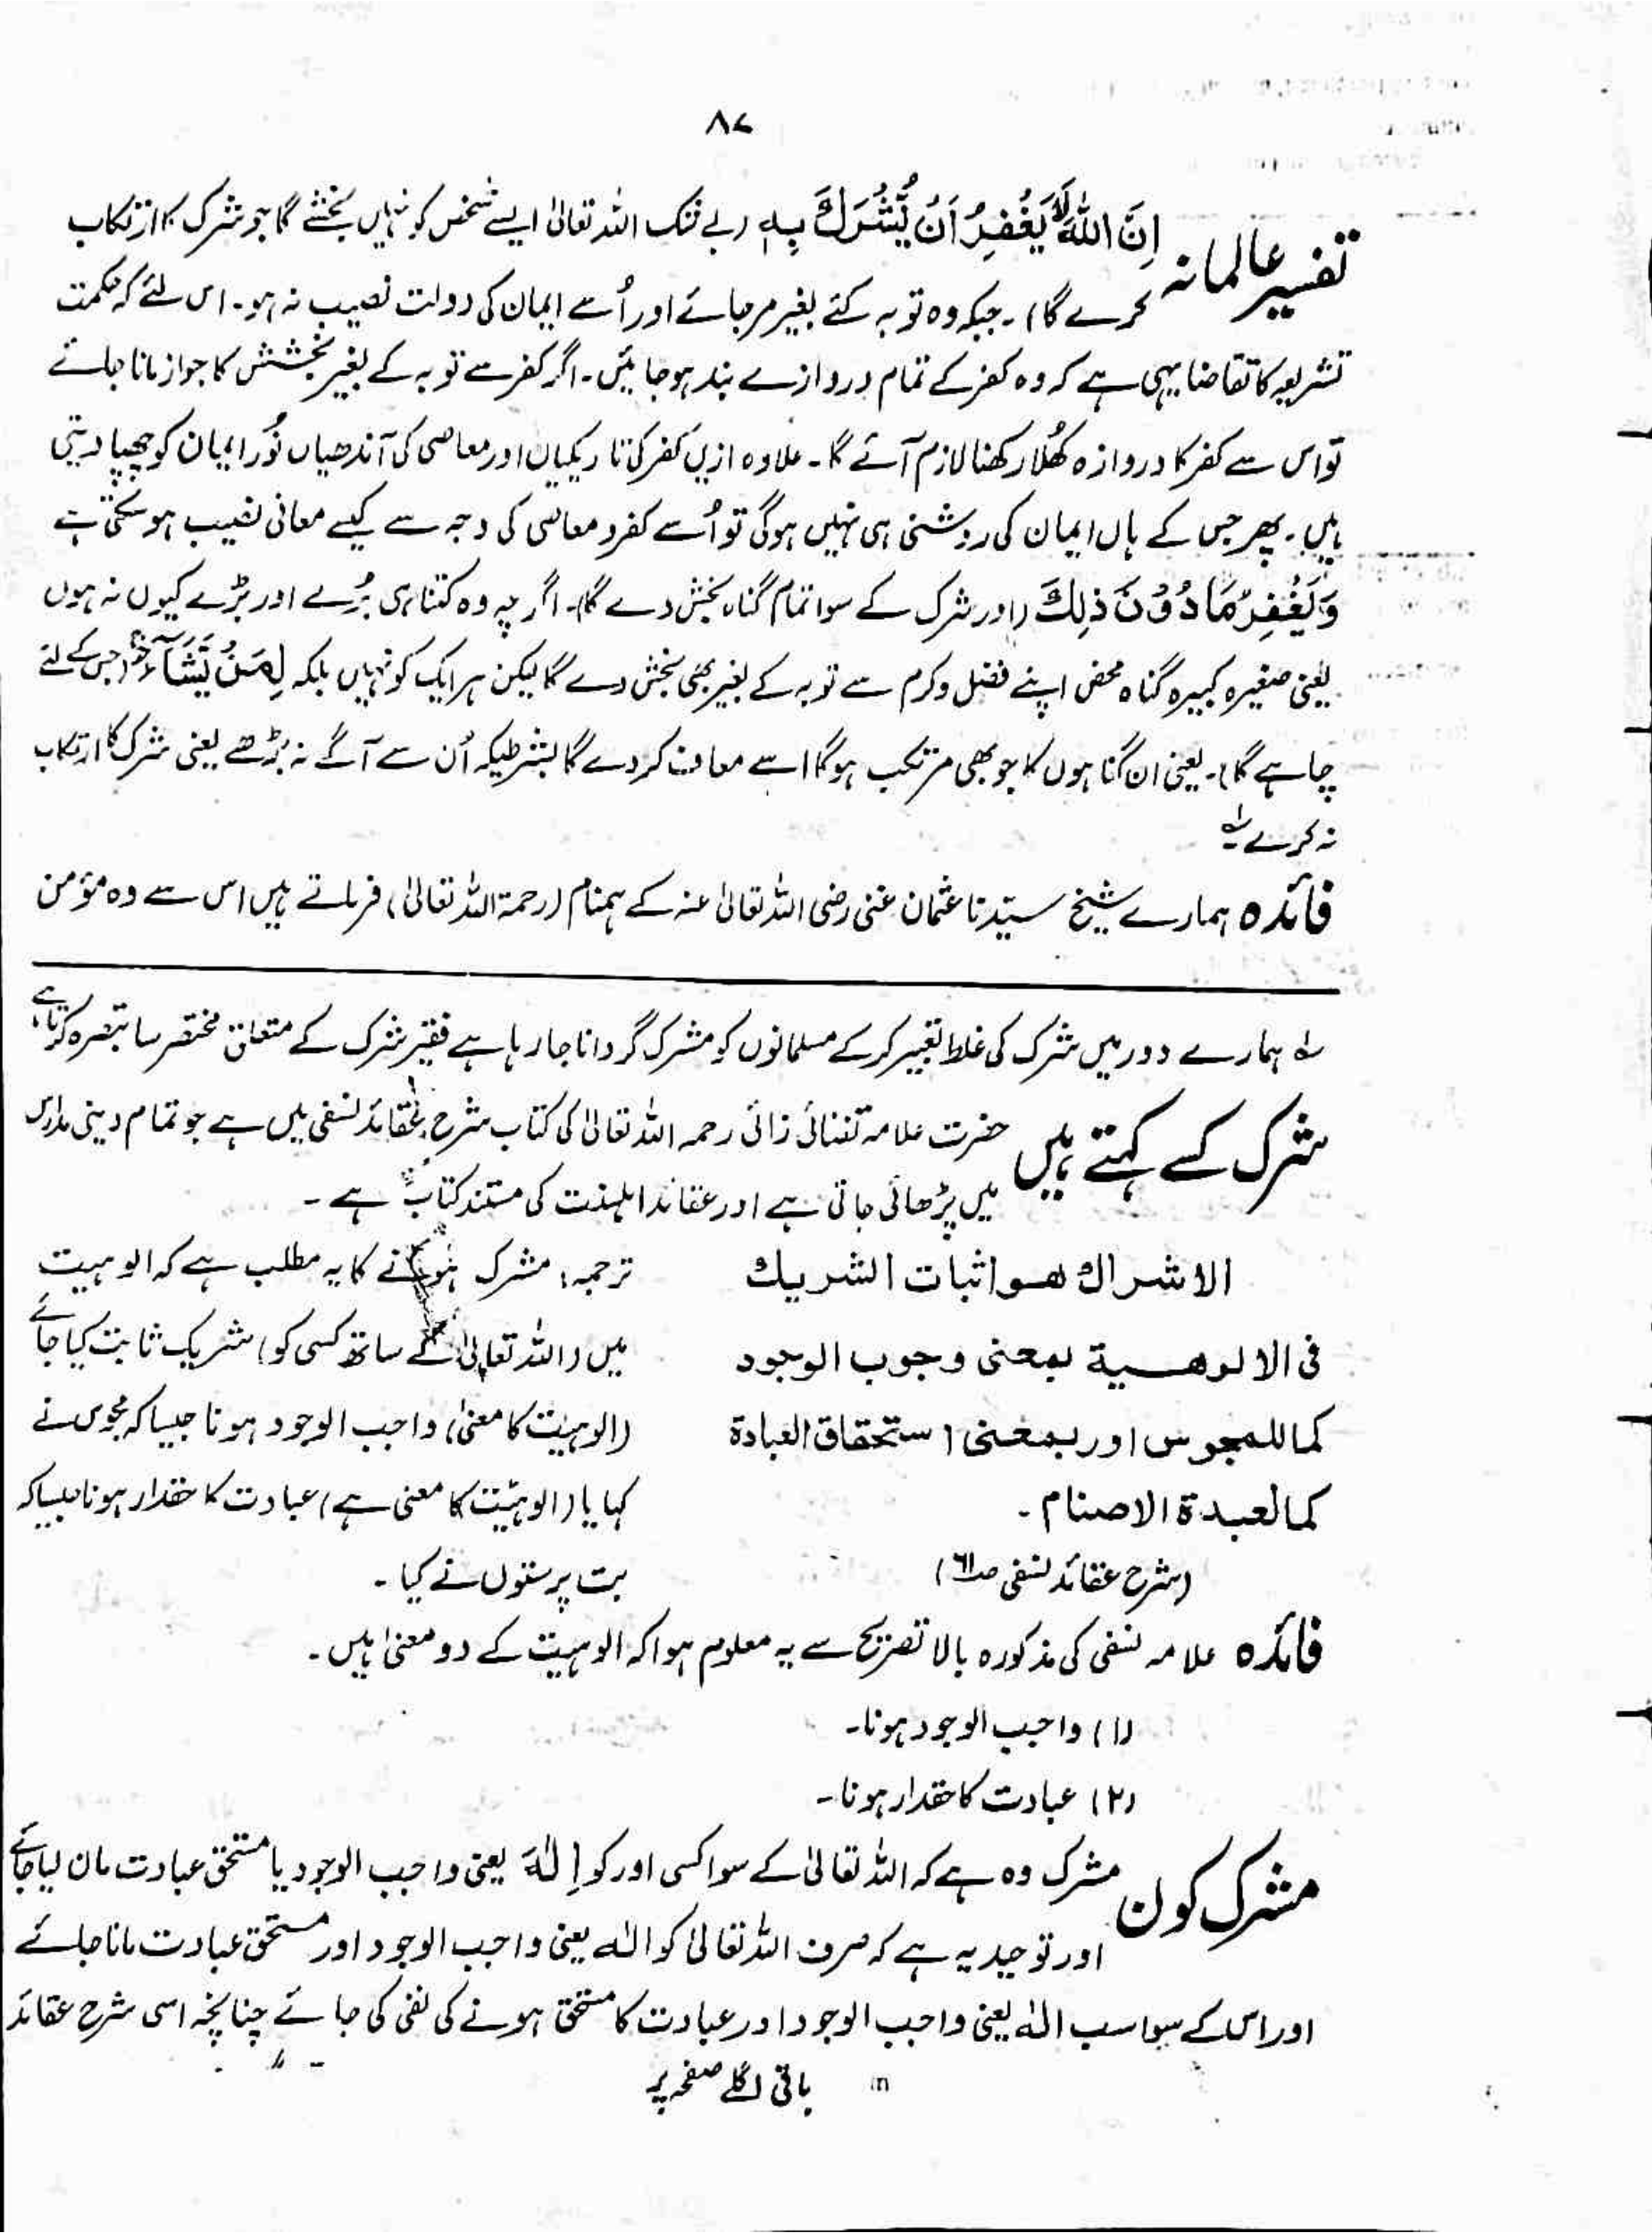 ۸۷
تفسیر عالمانہ اِنَّ اللّٰہَ لَا یَغْفِرُ اَنْ یُّشْرَكَ بِہٖ (بے شک اللہ تعالیٰ ایسے شخص کو نہیں بخشے گا جو شرک کا ارتکاب
کرے گا)۔ جبکہ وہ توبہ کئے بغیر مرجائے اور اُسے ایمان کی دولت نصیب نہ ہو۔ اس لئے کہ حکمت
تشریعیہ کا تقاضا یہی ہے کہ وہ کفر کے تمام دروازے بند ہوجائیں۔ اگر کفر سے توبہ کے بغیر بخشش کا جواز مانا جائے
تو اس سے کفر کا دروازہ کھُلا رکھنا لازم آئے گا۔ علاوہ ازیں کفر کی تاریکیاں اور معاصی کی آندھیاں نُور ایمان کو چھپا دیتی
ہیں۔ پھر جس کے ہاں ایمان کی روشنی ہی نہیں ہوگی تو اُسے کفر و معاصی کی وجہ سے کیسے معافی نصیب ہوسکتی ہے
وَیَغْفِرُ مَا دُوْنَ ذٰلِكَ (اور شرک کے سوا تمام گناہ بخش دے گا)۔ اگرچہ وہ کتنا ہی بُرے اور بڑے کیوں نہ ہوں
یعنی صغیرہ کبیرہ گناہ محض اپنے فضل و کرم سے توبہ کے بغیر بھی بخش دے گا لیکن ہر ایک کو نہیں بلکہ لِمَنْ یَّشَآءُ (جس کے لئے
چاہے گا)۔ یعنی ان گناہوں کا جو بھی مرتکب ہوگا اسے معاف کر دے گا بشرطیکہ اُن سے آگے نہ بڑھے یعنی شرک کا ارتکاب
نہ کرے لہ
فائدہ ہمارے شیخ سیّدنا عثمان غنی رضی اللہ تعالیٰ عنہ کے ہمنام (رحمۃ اللہ تعالیٰ) فرماتے ہیں اس سے وہ مؤمن
لہ ہمارے دور میں شرک کی غلط تعبیر کرکے مسلمانوں کو مشرک گردانا جارہا ہے فقیر شرک کے متعلق مختصر سا تبصرہ کرتا ہے
شرک کسے کہتے ہیں حضرت علامہ تفتازانی رحمہ اللہ تعالیٰ کی کتاب شرح عقائد نسفی میں ہے جو تمام دینی مدارس
میں پڑھائی جاتی ہے اور عقائد اہلسنت کی مستند کتاب ہے۔
الاشراك هو اثبات الشريك ترجمہ: مشرک ہونے کا یہ مطلب ہے کہ الوہیت
فى الالوهية بمعنى وجوب الوجود میں (اللہ تعالیٰ کے ساتھ کسی کو) شریک ثابت کیا جائے
كما للمجوس اور بمعنى استحقاق العبادة (الوہیّت کا معنیٰ) واجب الوجود ہونا جیسا کہ مجوس نے
كما لعبدة الاصنام۔ کہا یا (الوہیّت کا معنی ہے) عبادت کا حقدار ہونا جیسا کہ
(شرح عقائد نسفی صـ۶۱) بت پرستوں نے کیا۔
فائدہ علامہ نسفی کی مذکورہ بالا تصریح سے یہ معلوم ہوا کہ الوہیت کے دو معنیٰ ہیں۔
(۱) واجب الوجود ہونا۔
(۲) عبادت کا حقدار ہونا۔
مشرک کون مشرک وہ ہے کہ اللہ تعالیٰ کے سوا کسی اور کو اِلٰہَ یعنی واجب الوجود یا مستحق عبادت مان لیا جائے
اور توحید یہ ہے کہ صرف اللہ تعالیٰ کو الٰہ یعنی واجب الوجود اور مستحق عبادت مانا جائے
اور اس کے سوا سب الٰہ یعنی واجب الوجود اور عبادت کا مستحق ہونے کی نفی کی جائے چنانچہ اسی شرح عقائد
باقی اگلے صفحہ پر